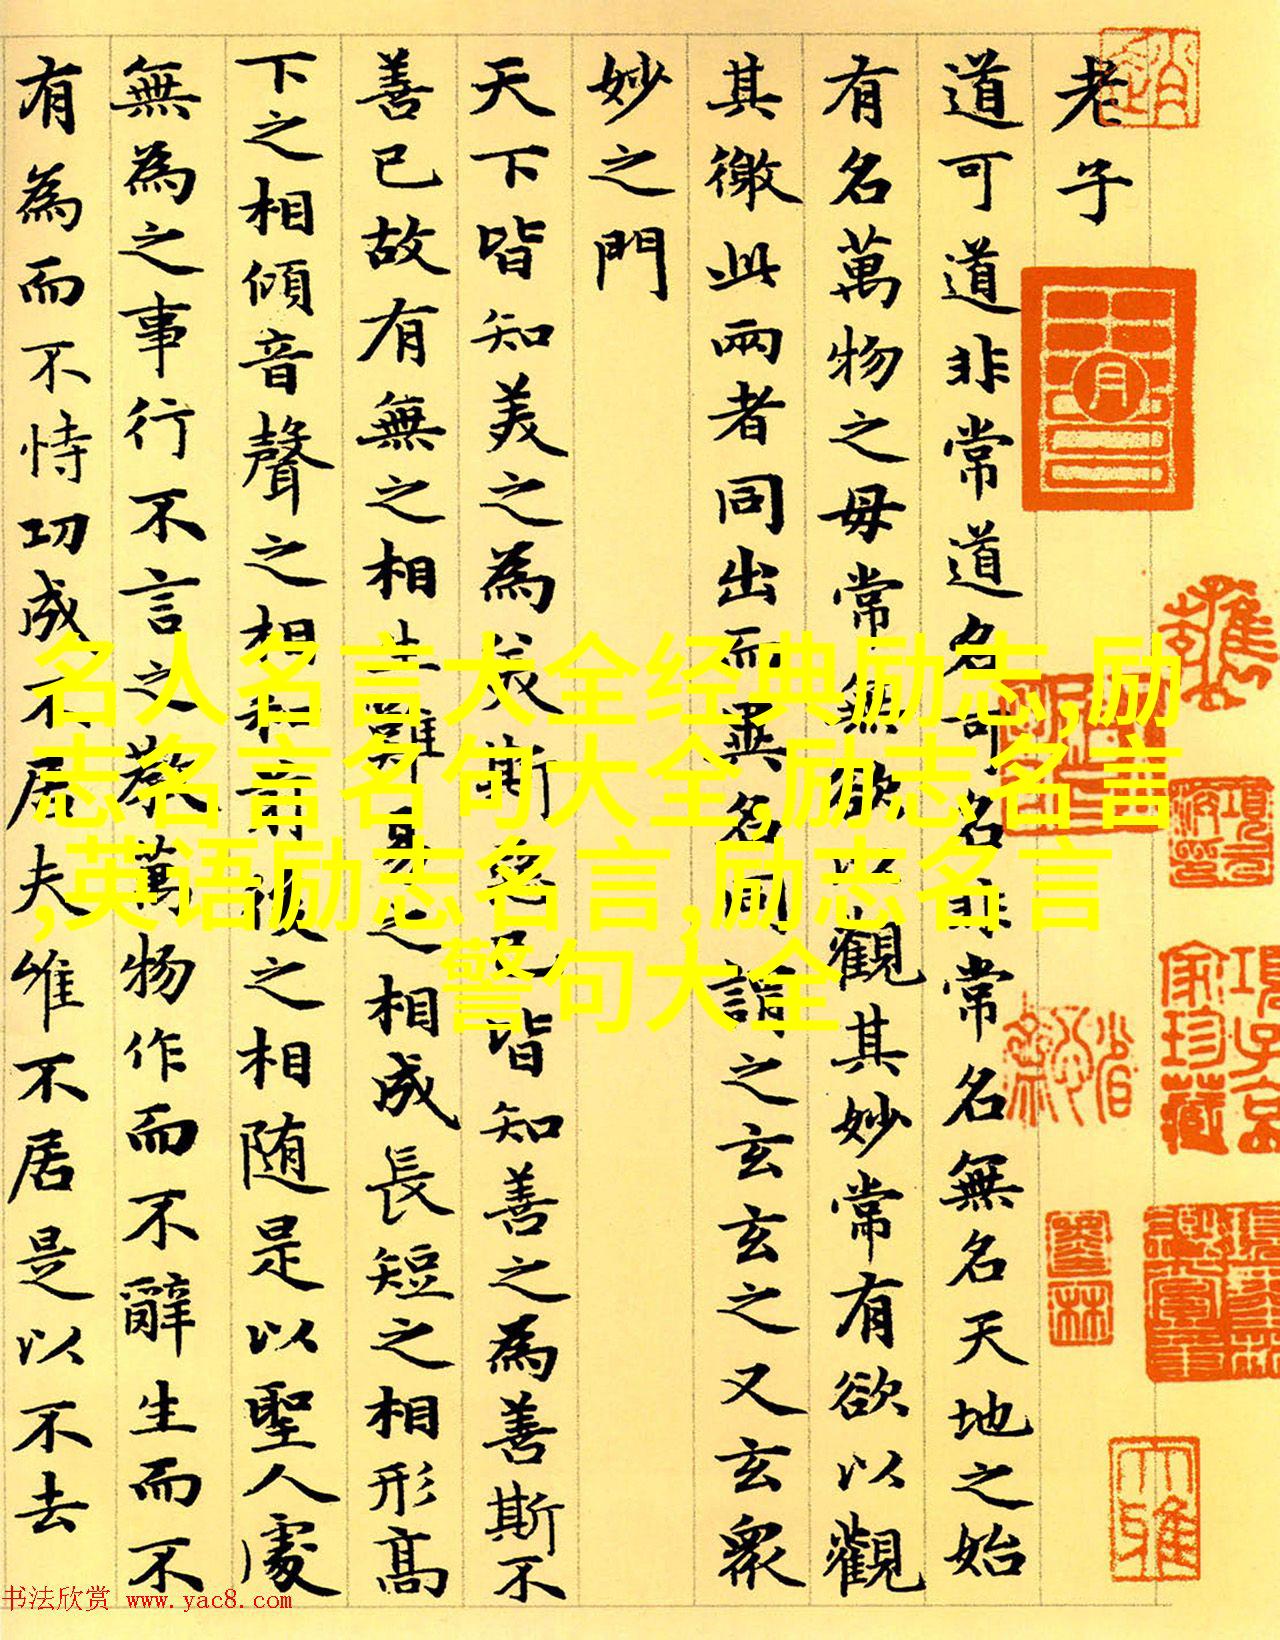 老子
道可道非常道名可名非常名無名天地之始
有名萬物之母常無欲以觀其妙常有欲以觀
其徼此兩者同出而異名同謂之玄玄之又玄衆
妙之門
天下皆知美之為美斯惡已皆知善之為善斯不
善已故有無之相生難易之相成長短之相形高
下之相傾音聲之相和前後之相随是以聖人處
無為之事行不言之教萬物作而不辭生而不
有為而不恃功成不居夫惟不居是以不去
名人名言大全经典励志,励
志名言名句大全,励志名言
,英语励志名言,励志名言
警句大全
項子京
家珍藏
大雅
书法欣赏 www.yac8.com